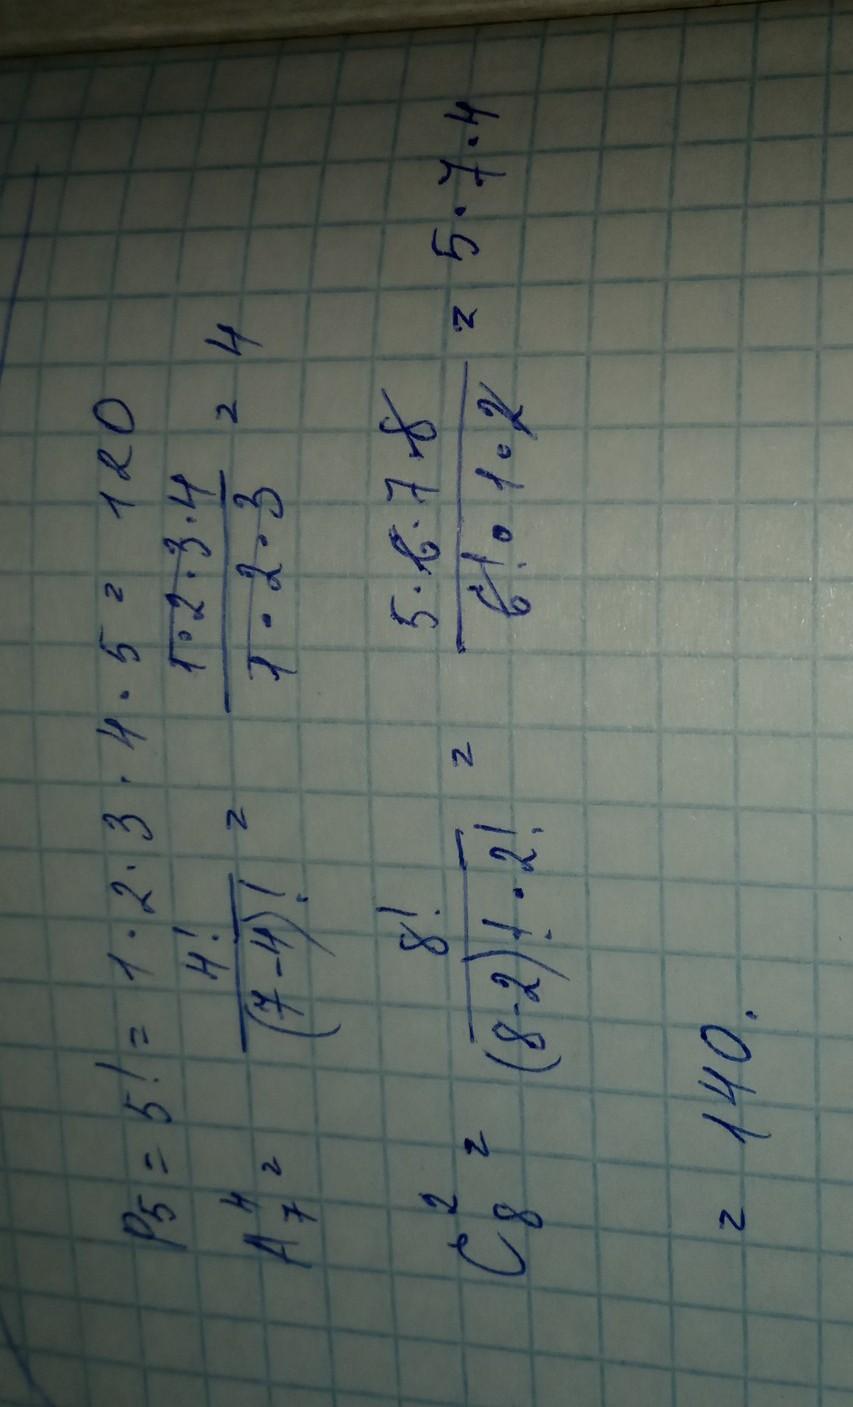 P₅ = 5! = 1 · 2 · 3 · 4 · 5 = 120
A₇⁴ = 4! / (7-4)! = 1·2·3·4 / 1·2·3 = 4
C₈² = 8! / (8-2)! · 2! = 5·6·7·8 / 6! · 1·2 = 5·7·4
= 140.